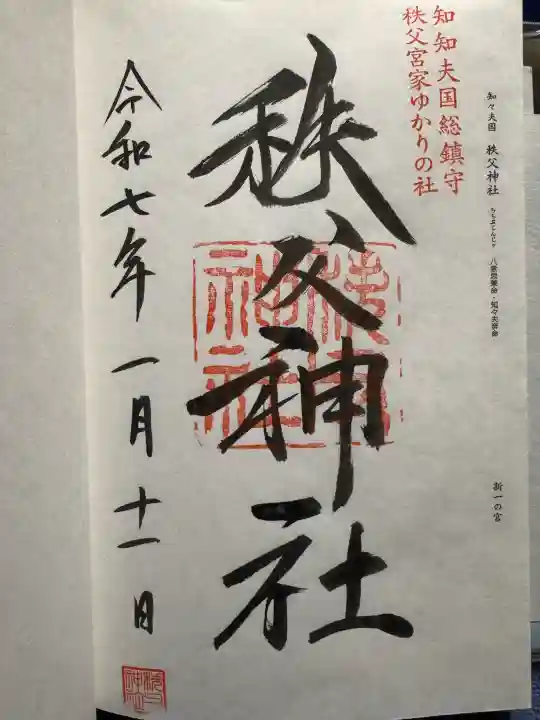 知々夫国 秩父神社 ちちぶじんじゃ 八意思兼命・知々夫彦命
新一の宮
知知夫国総鎮守
秩父宮家ゆかりの社
秩父神社
令和七年 一月 十一日